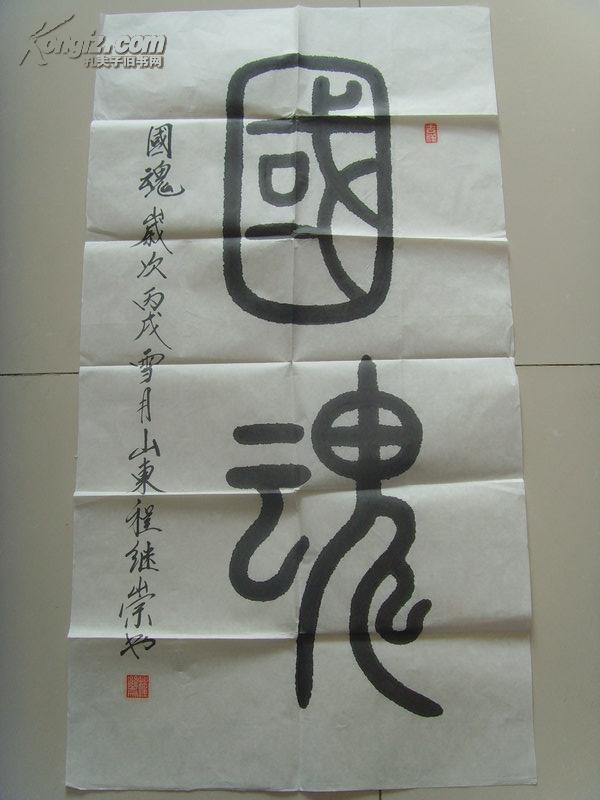 Kongfz.com
孔夫子旧书网
國魂
國魂 歲次丙戌雪月山東程继崇书